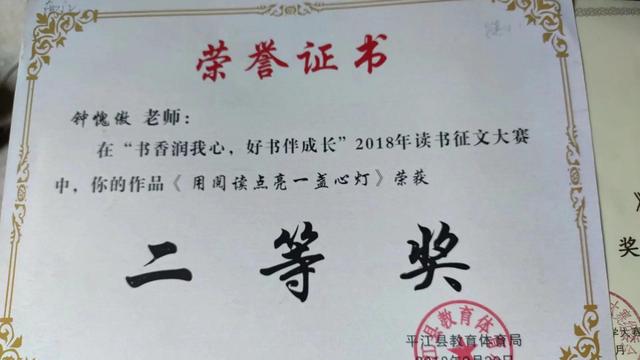 荣誉证书
钟愧傲 老师：
在“书香润我心，好书伴成长”2018年读书征文大赛
中，你的作品《用阅读点亮一盏心灯》荣获
二等奖
平江县教育体育局
奖